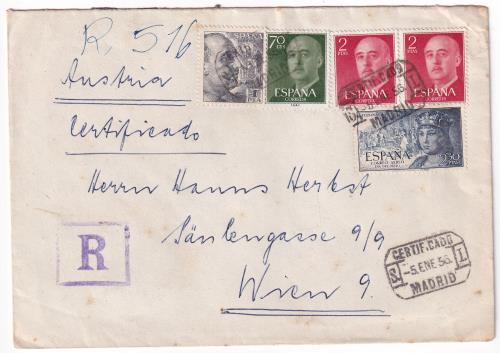 R, 516
Austria
Certificado
Herrn Hanns Herbst
Säulengasse 9/9
Wien 9.
R
ESPAÑA
70 CTS
ESPAÑA
CORREOS
2 PTAS
ESPAÑA
CORREOS
2 PTAS
ESPAÑA
CORREOS
ESPAÑA
CORREO AEREO
CERTIFICADO
MADRID
CERTIFICADO
S. I.
-5.ENE 56.
MADRID